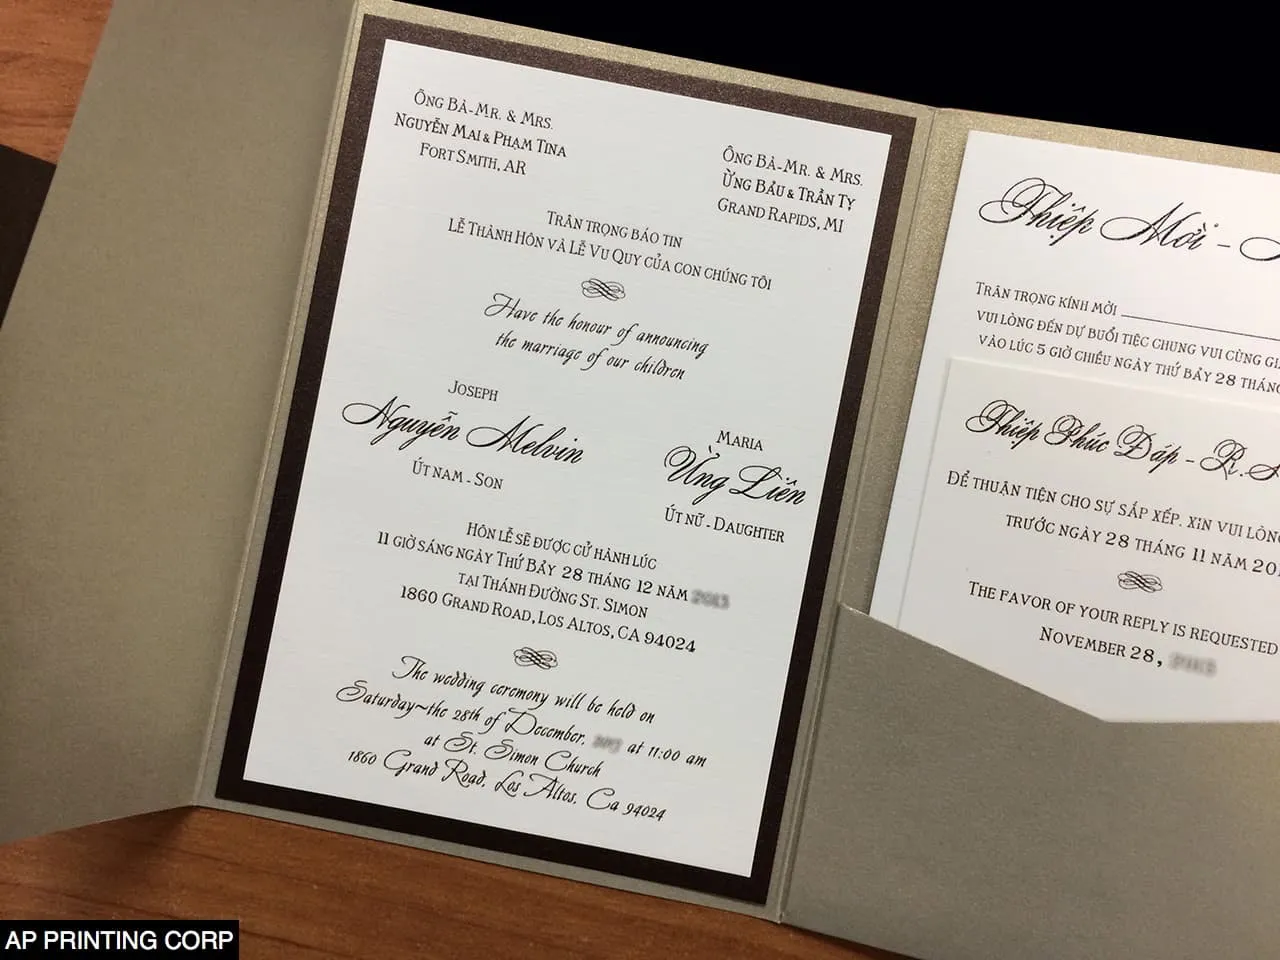 ÔNG BÀ-MR. & MRS.
NGUYỄN MAI & PHẠM TINA
FORT SMITH, AR
ÔNG BÀ-MR. & MRS.
ỪNG BẢU & TRẦN TỴ
GRAND RAPIDS, MI
TRÂN TRỌNG BÁO TIN
LỄ THÀNH HÔN VÀ LỄ VU QUY CỦA CON CHÚNG TÔI
Have the honour of announcing
the marriage of our children
JOSEPH
Nguyễn Melvin
ÚT NAM - SON
MARIA
Ừng Liên
ÚT NỮ - DAUGHTER
HÔN LỄ SẼ ĐƯỢC CỬ HÀNH LÚC
11 GIỜ SÁNG NGÀY THỨ BẢY 28 THÁNG 12 NĂM
TẠI THÁNH ĐƯỜNG ST. SIMON
1860 GRAND ROAD, LOS ALTOS, CA 94024
The wedding ceremony will be held on
Saturday~the 28th of December, at 11:00 am
at St. Simon Church
1860 Grand Road, Los Altos, Ca 94024
Thiệp Mời -
TRÂN TRỌNG KÍNH MỜI
VUI LÒNG ĐẾN DỰ BUỔI TIỆC CHUNG VUI CÙNG
VÀO LÚC 5 GIỜ CHIỀU NGÀY THỨ BẢY 28 THÁN
Thiệp Phúc Đáp - R.S
ĐỂ THUẬN TIỆN CHO SỰ SẮP XẾP, XIN VUI LÒN
TRƯỚC NGÀY 28 THÁNG 11 NĂM 20
THE FAVOR OF YOUR REPLY IS REQUESTED
NOVEMBER 28,
AP PRINTING CORP